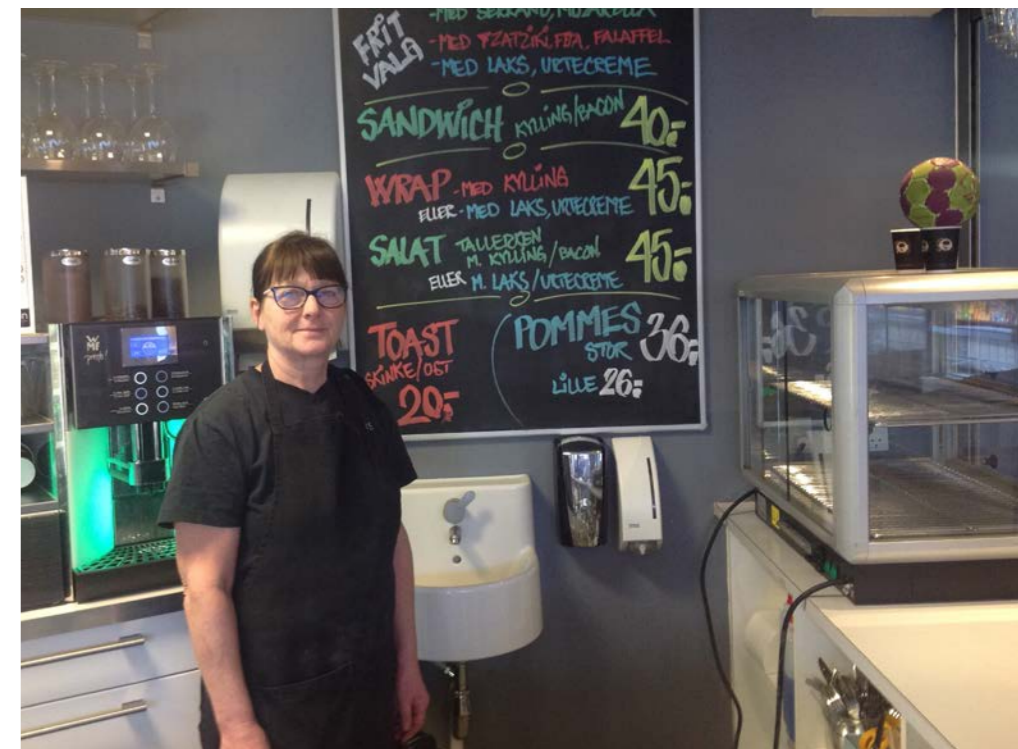 FRIT VALG
-MED SERRANO, MOZARELLA
-MED TZATZIKI, FETA, FALAFFEL
-MED LAKS, URTECREME
SANDWICH KYLLING/BACON 40,-
WRAP -MED KYLLING 45,-
ELLER -MED LAKS, URTECREME
SALAT TALLERKEN
M. KYLLING/BACON 45,-
ELLER M. LAKS/URTECREME
TOAST
SKINKE/OST
20,-
POMMES
STOR 36,-
LILLE 26,-
WMF
presto!